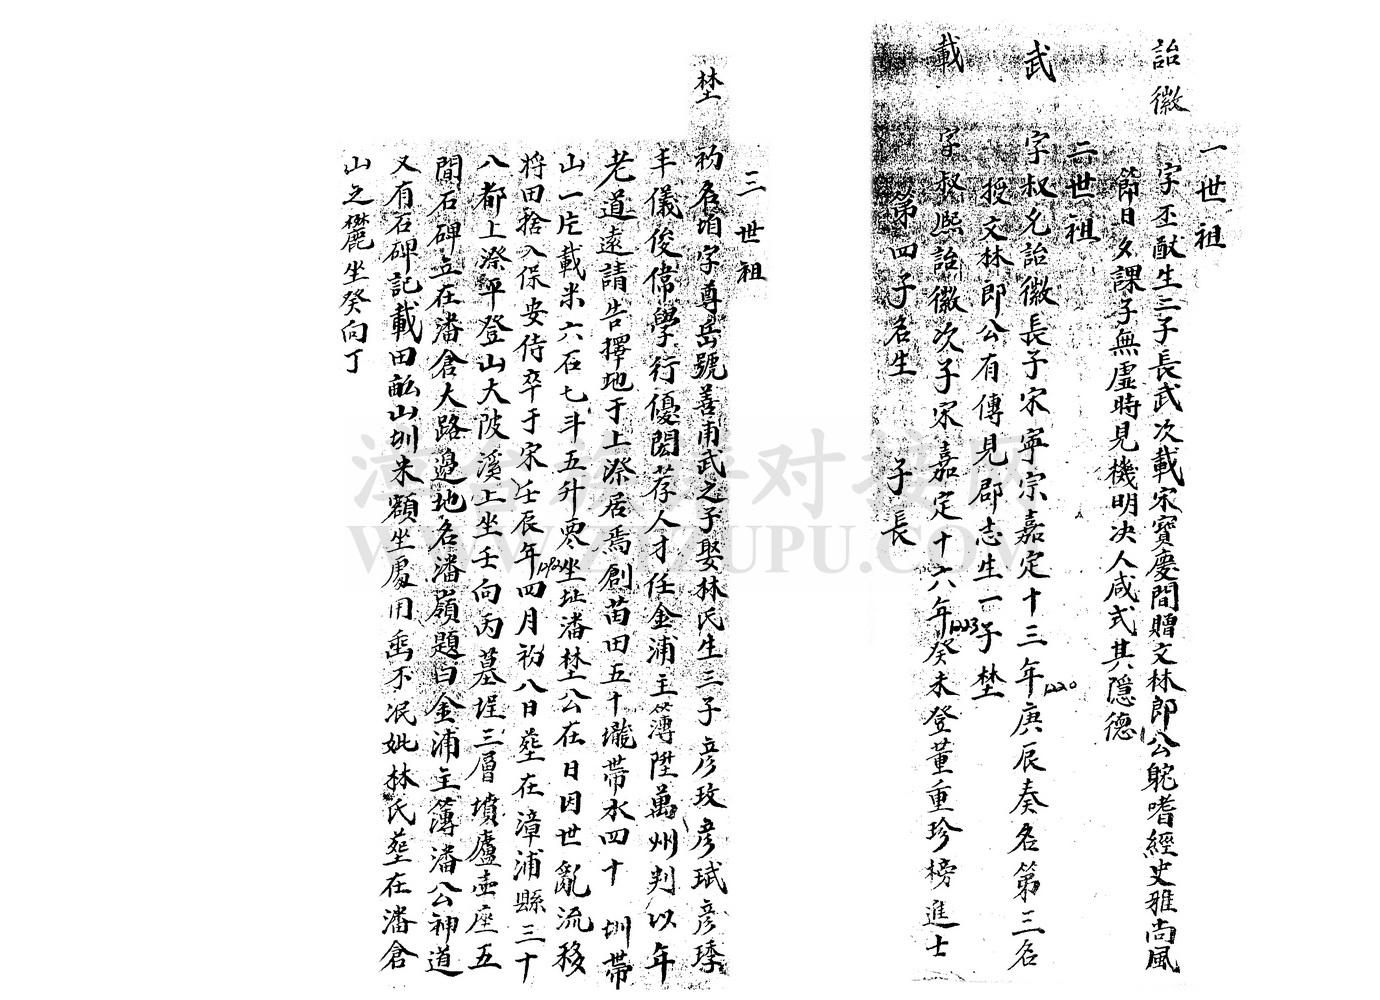 一世祖
詒徽
字丕猷生二子長武次載宋寶慶間贈文林郎公躭嗜經史雅尚風
節日夕課子無虛時見機明决人咸式其隱德
二世祖
武
字叔允詒徽長子宋寧宗嘉定十三年1220庚辰奏名第三名
授文林郎公有傳見郡志生一子埜
載
字叔熙詒徽次子宋嘉定十六年1223癸未登董重珍榜進士
第四子名生 子長
三世祖
埜
初名垍字尊岳號善甫武之子娶林氏生三子彥玫彥珷彥琫
丰儀俊偉學行優閎荐人才任金浦主簿陞萬州判以年
老道遠請告擇地于上漈居焉創苗田五十壠帶水四十 圳帶
山一片載米六石七斗五升零坐址潘埜公在日因世亂流移
将田捨入保安侍卒于宋壬辰年1292四月初八日塟在漳浦縣三十
八都上漈平登山大陂溪上坐壬向丙墓埕三層墳廬壺座五
間石碑立在潘倉大路邊地名潘嶺題曰金浦主簿潘公神道
又有石碑記載田畝山圳米額坐處用垂不泯妣林氏塟在潘倉
山之麓坐癸向丁
WWW.ZJZUPU.COM